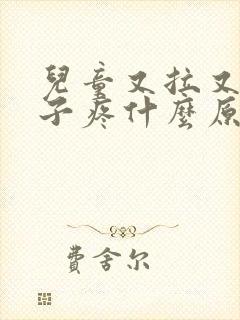 兒童又拉又
子疼什麼原
費舍尔